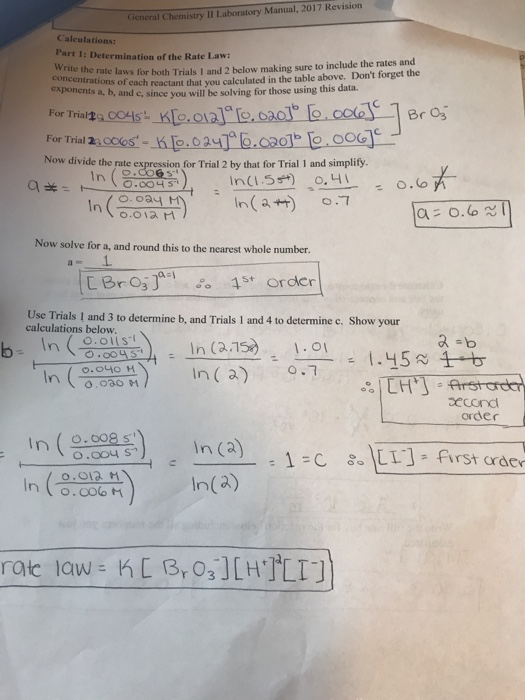 General Chemistry II Laboratory Manual, 2017 Revision
Calculations:
Part 1: Determination of the Rate Law:
Write the rate laws for both Trials 1 and 2 below making sure to include the rates and
concentrations of each reactant that you calculated in the table above. Don't forget the
exponents a, b, and c, since you will be solving for those using this data.
For Trial 1 0.004s⁻¹ = K[0.012]ᵃ [0.020]ᵇ [0.006]ᶜ ] BrO₃⁻
For Trial 2 0.006s⁻¹ = K[0.024]ᵃ [0.020]ᵇ [0.006]ᶜ
Now divide the rate expression for Trial 2 by that for Trial 1 and simplify.
a = ln (0.006 s⁻¹ / 0.004 s⁻¹) / ln (0.024 M / 0.012 M) = ln(1.5) / ln(2) = 0.41 / 0.7 = 0.6
a = 0.6 ≈ 1
Now solve for a, and round this to the nearest whole number.
a = 1
[BrO₃⁻]ᵃ⁼¹ ∴ 1st order
Use Trials 1 and 3 to determine b, and Trials 1 and 4 to determine c. Show your
calculations below.
b = ln (0.011s⁻¹ / 0.004s⁻¹) / ln (0.040 M / 0.020 M) = ln(2.75) / ln(2) = 1.01 / 0.7 = 1.45 ≈ 1 = b
2 = b
∴ [H⁺] = first order
second
order
= ln (0.008 s⁻¹ / 0.004 s⁻¹) / ln (0.012 M / 0.006 M) = ln(2) / ln(2) = 1 = C ∴ [I⁻] = first order
rate law = K[BrO₃⁻][H⁺]²[I⁻]